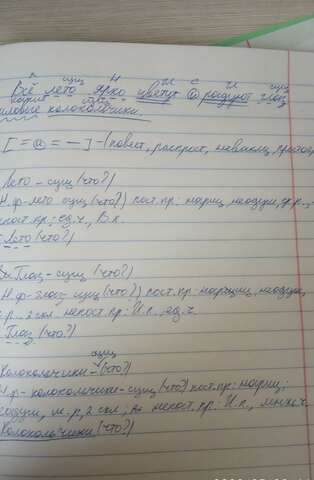 л. сущ. Н Н С Н сущ.
Всё лето ярко цветут и радуют глаз
лиловые колокольчики.
[= и = —] - (повест,
Лето - сущ (что?)
Н.ф-лето сущ (что?) пост.пр: нариц, неодуш,
непост.пр: ед.ч, В.п.
Лето (что?)
Глаз - сущ (что?)
Н.ф-глаз сущ (что?) пост.пр: нариц, неодуш,
м.р 2 скл. непост.пр: И.п., ед.ч.
Глаз (что?)
сущ
Колокольчики - (что?)
Н.ф- колокольчики - сущ (что?) пост.пр: нариц;
неодуш, м.р, 2 скл; непост.пр: И.п., множ.ч.
Колокольчики (что?)